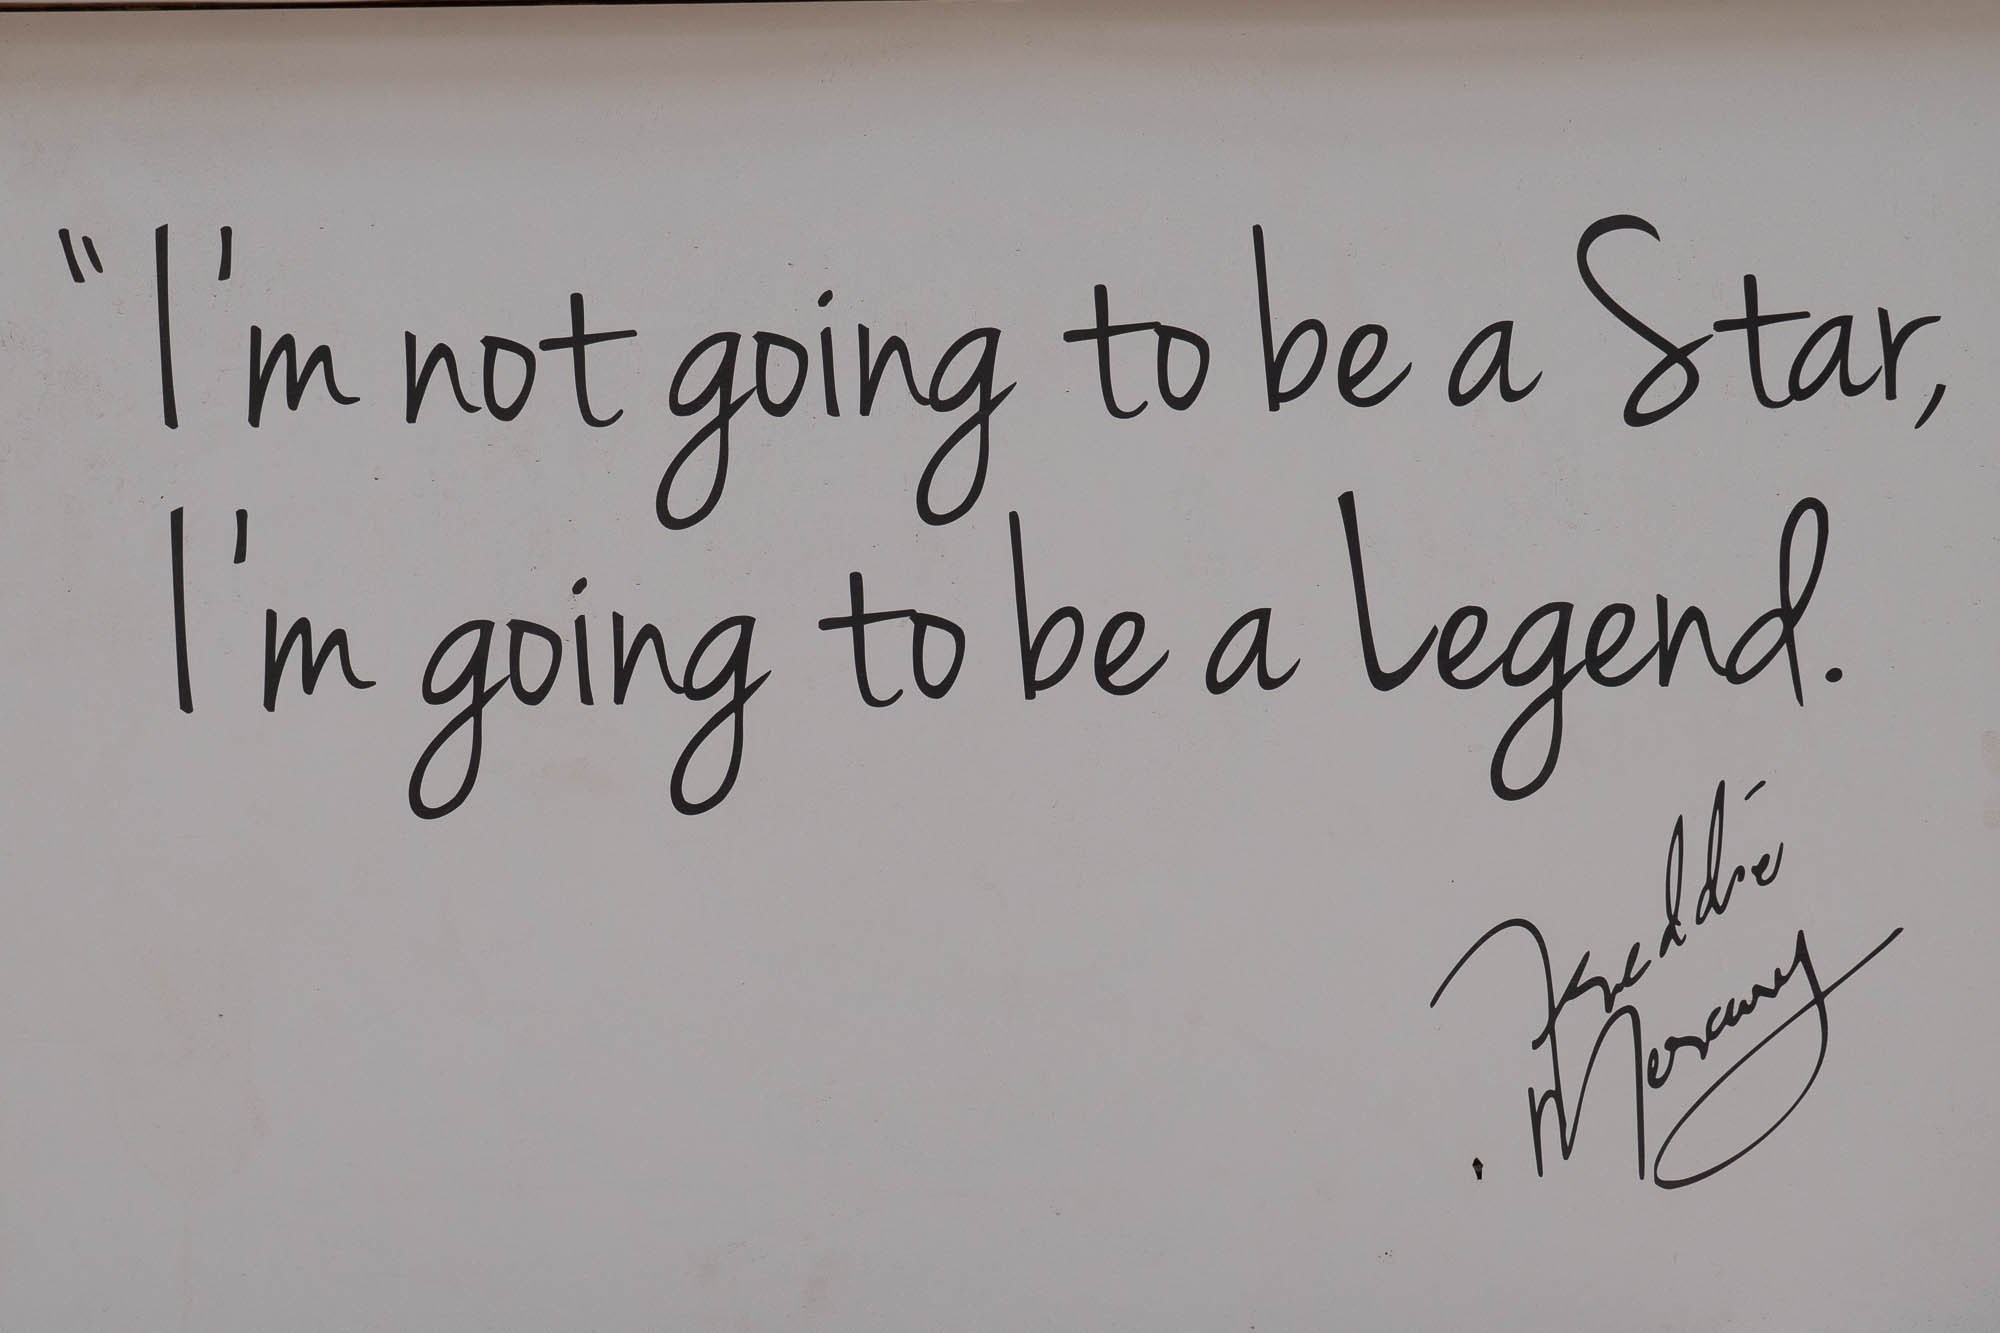 "I'm not going to be a Star,
I'm going to be a Legend.
Freddie
Mercury